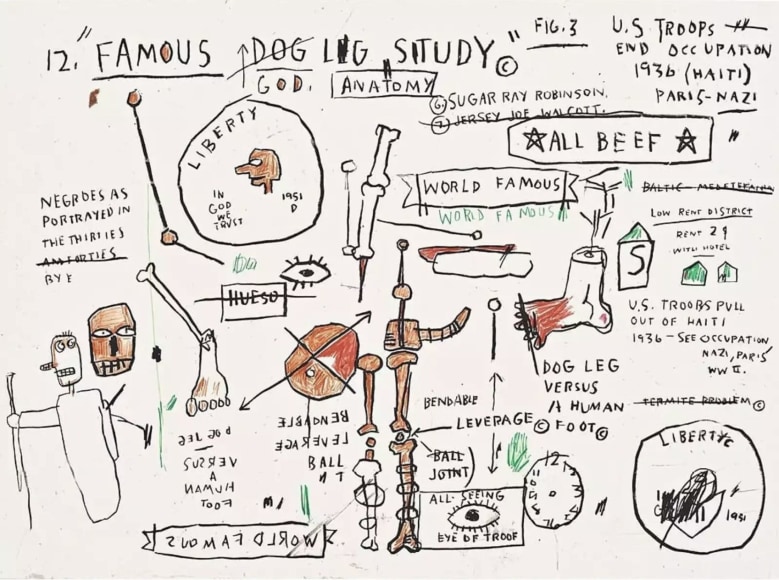 12. "FAMOUS DOG LEG STUDY"©
GOD. ANATOMY
FIG.3
U.S. TROOPS
END OCCUPATION
1936 (HAITI)
PARIS-NAZI
⑥ SUGAR RAY ROBINSON.
⑦ JERSEY JOE WALCOTT.
☆ALL BEEF☆"
LIBERTY
IN
GOD
WE
TRUST
1951
D
WORLD FAMOUS
WORLD FAMOUS
LOW RENT DISTRICT
RENT 2¢
WITH HOTEL
S
NEGROES AS
PORTRAYED IN
THE THIRTIES
AM FORTIES
BY E
HUESO
U.S. TROOPS PULL
OUT OF HAITI
1936 - SEE OCCUPATION
NAZI, PARIS
WW II.
TERMITE PROBLEM©
DOG LEG
VERSUS
A HUMAN
FOOT©
BENDABLE
LEVERAGE©
BALL
JOINT
BENDABLE
LEVERAGE
BALL
DOG LEG
VERSUS
A
HUMAN
FOOT
12
ALL-SEEING
EYE OF TROOF
WORLD FAMOUS
LIBERTY©
1951